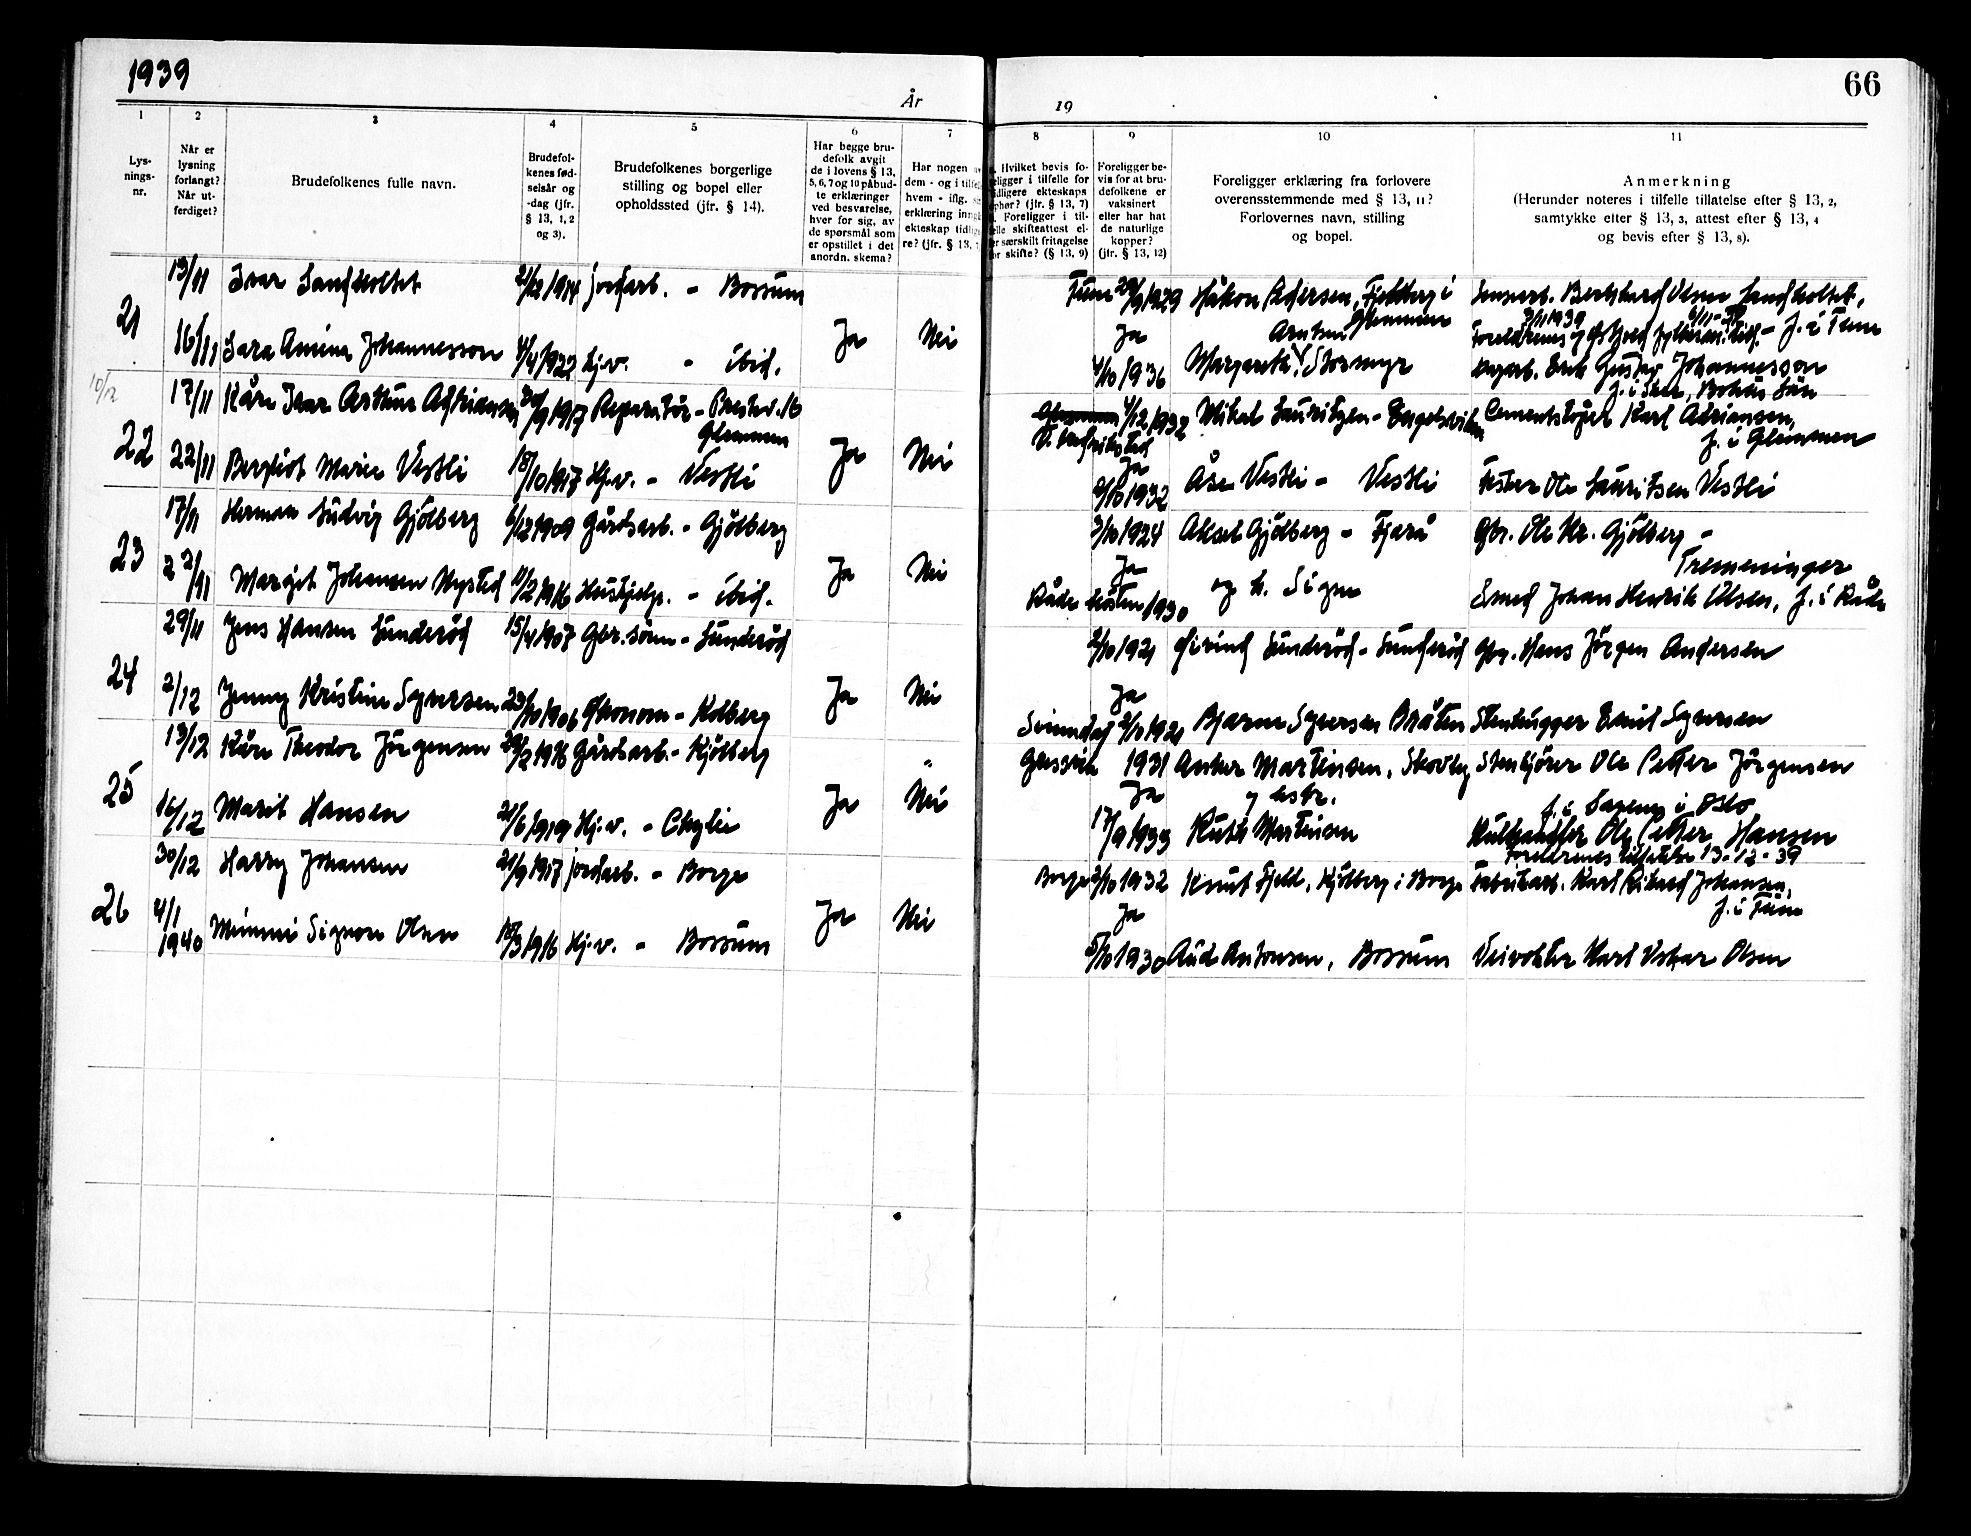 1939
År
19
66
1 2 3 4 5 6 7 8 9 10 11
Lys-
nings-
nr.
Når er
lysning
forlangt?
Når ut-
ferdiget?
Brudefolkenes fulle navn.
Brudefol-
kenes fød-
selsår og
-dag (jfr.
§ 13, 1, 2
og 3).
Brudefolkenes borgerlige
stilling og bopel eller
opholdssted (jfr. § 14).
Har begge bru-
defolk avgit
de i lovens § 13,
5, 6, 7 og 10 påbud-
te erklæringer
ved besvarelse,
hver for sig, av
de spørsmål som
er opstillet i det
anordn. skema?
Har nogen
dem - og i
hvem - iflg.
erklæring
ekteskap
re? (jfr. § 13,
Hvilket bevis fo-
religger i tilfelle for
tidligere ekteskaps
ophør? (jfr. § 13, 7)
Foreligger i til-
felle skifteattest el-
er særskilt fritagelse
for skifte? (§ 13, 9)
Foreligger be-
vis for at bru-
defolkene er
vaksinert
eller har hat
de naturlige
kopper?
(jfr. § 13, 12)
Foreligger erklæring fra forlovere
overensstemmende med § 13, 11?
Forlovernes navn, stilling
og bopel.
Anmerkning
(Herunder noteres i tilfelle tillatelse efter § 13, 2,
samtykke efter § 13, 3, attest efter § 13, 4
og bevis efter § 13, 8).
13/11 Ivar Sandholtet 2/12 1914 jordarb. - Borsum Tune 1929 Håkon Pedersen, Fjeldberg i Glemmen
21 Ja Nei Ja
16/11 Sara Amina Johannesson 4/4 1922 Hj.v. - ibid. 4/10 1936 Margareth Arntsen Stormyr Gustav Johannesson
10/12
17/11 Kåre Ivar Arthur Adriansen 1917 Reparatør - Prestev. 16 Glemmen 4/12 1932 Mikal Lauritzen - Cementstøper Karl Adriansen,
f. i Glemmen
22 Ja Nei Ja
22/11 Bergliot Marie Vestli 18/10 1917 Hj.v. - Vestli 1932 Åse Vestli - Vestli Fisker Ole Lauritsen Vestli
17/11 Herman Ludvig Gjölberg 6/12 1909 Gårdsarb. - Gjölberg 3/10 1924 Aksel Gjölberg - Fjarå Gbr. Ole Kr. Gjölberg -
Tremeninger
23 Ja Nei Ja
22/11 Margit Johansen Nysted 11/2 1916 Hushjelp. - ibid. Råde hösten 1930 og h. Signe Smed Johan Henrik Olsen, f. i Råde
29/11 Jens Hansen Sunderöd 15/4 1907 Gbr.sönn - Sunderöd 2/10 1921 Öivind Sunderöd - Sunderöd Gbr. Hans Jörgen Andersen
24 Ja Nei Ja
2/12 Jenny Kristine Syversen 23/10 1906 Økonom - Kolberg Svinndal 2/10 1921 Bjarne Syversen Bråten Stenhugger Emil Syversen
13/12 Kåre Theodor Jörgensen 28/2 1916 Gårdsarb. - Kjölberg Gressvik 1931 Anker Martinsen, Skovly Stenkjörer Ole Petter Jörgensen
25 Ja Nei Ja og hstr.
f. i Sagene i Oslo
16/12 Marit Hansen 21/6 1919 Hj.v. - 17/9 1933 Ruth Martinsen Kullhandler Ole Petter Hansen
Foreldrenes tillatelse 13-12-39
30/12 Harry Johansen 21/9 1917 jordarb. - Borge Borge 2/10 1932 Knut Fjeld, Kjölberg i Borge Fabrikarb. Karl Rikard Johansen,
f. i Tune
26 Ja Nei Ja
4/1
1940 Mimmi Signora Olsen 18/3 1916 Hj.v. - Borsum 5/10 1930 Aud Antonsen, Borsum Veivokter Karl Oskar Olsen